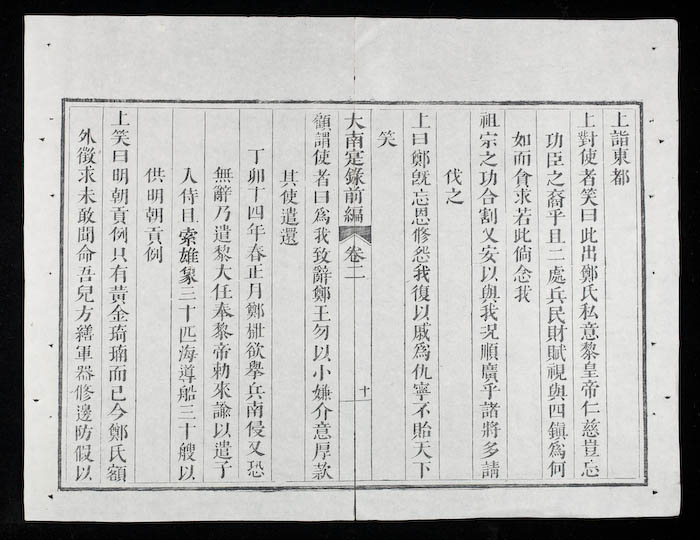 上詣東都
上對使者笑曰此出鄭氏私意黎皇帝仁慈豈忘
功臣之裔乎且二處兵民財賦視與四鎮爲何
如而貪求若此倘念我
祖宗之功合割乂安以與我況順廣乎諸將多請
伐之
上曰鄭旣忘恩修怨我復以戚爲仇寧不貽天下
笑
大南寔錄前編
卷二
十
顧謂使者曰爲我致辭鄭王勿以小嫌介意厚款
其使遣還
丁卯十四年春正月鄭棩欲擧兵南侵又恐
無辭乃遣黎大任奉黎帝勅來諭以遣子
入侍且索雄象三十匹海導船三十艘以
供明朝貢例
上笑曰明朝貢例只有黃金琦瑀而已今鄭氏額
外徵求未敢聞命吾兒方繕軍器修邊防假以